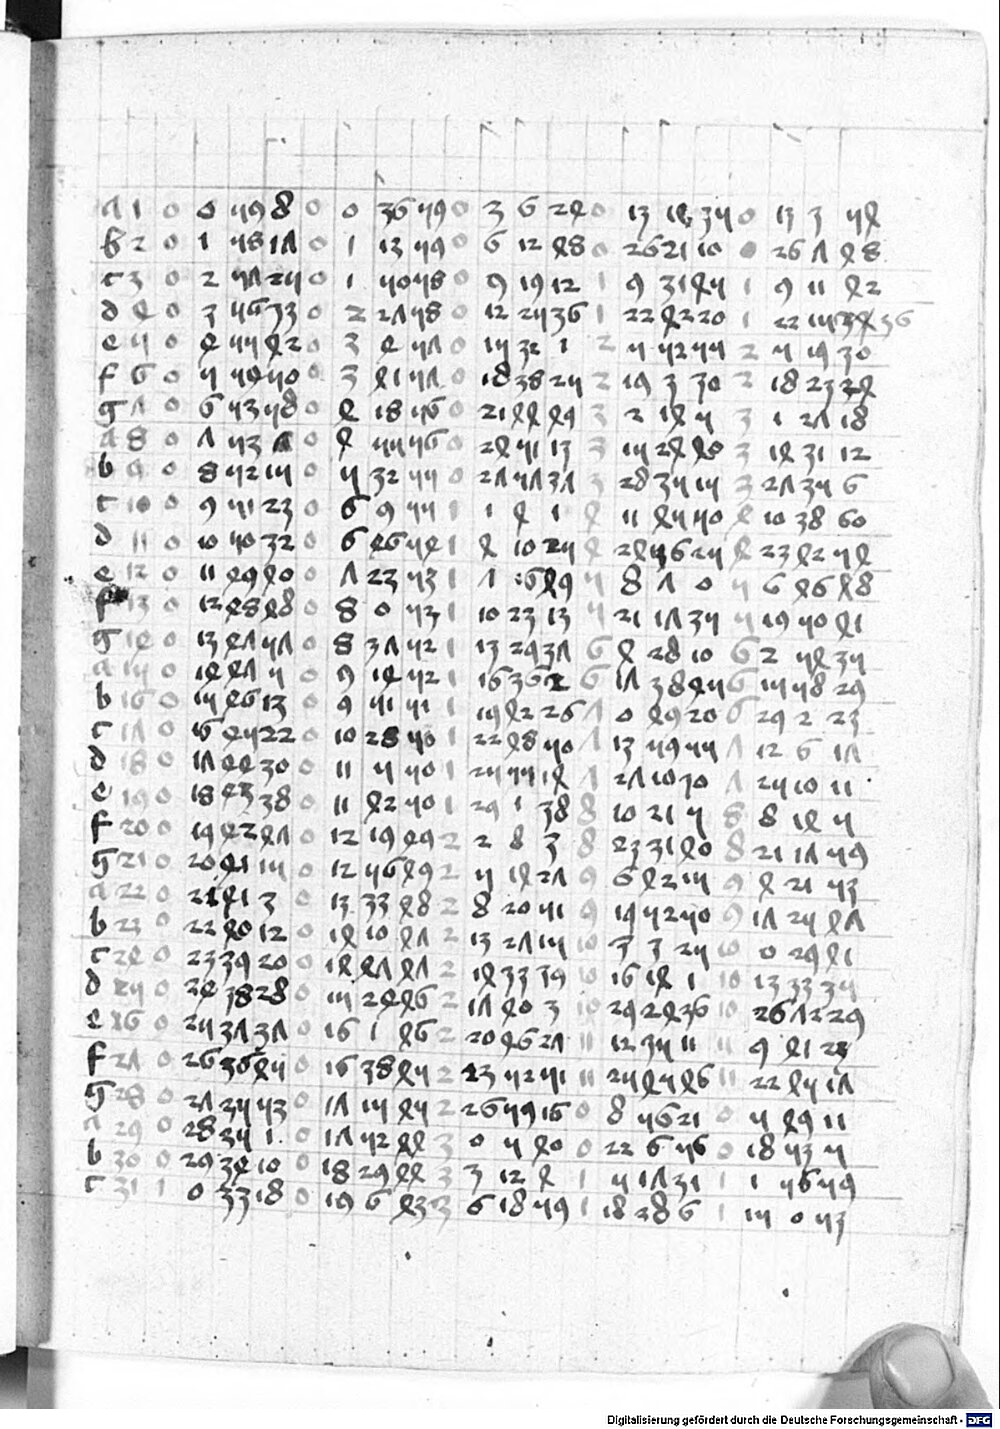 a 1 0 0 59 8 0 0 36 59 0 3 6 24 0 13 14 35 0 13 3 54
b 2 0 1 58 17 0 1 13 59 0 6 12 48 0 26 21 10 0 26 7 48
c 3 0 2 57 25 0 1 50 58 0 9 19 12 1 9 31 45 1 9 11 42
d 4 0 3 56 33 0 2 27 58 0 12 25 36 1 22 42 20 1 22 15 36
e 5 0 4 55 42 0 3 4 57 0 15 32 1 2 5 52 55 2 5 19 30
f 6 0 5 54 50 0 3 41 57 0 18 38 25 2 19 3 30 2 18 23 24
g 7 0 6 53 58 0 4 18 56 0 21 44 49 3 2 14 5 3 1 27 18
a 8 0 7 53 7 0 4 55 56 0 24 51 13 3 15 24 40 3 14 31 12
b 9 0 8 52 15 0 5 32 55 0 27 57 37 3 28 35 15 3 27 35 6
c 10 0 9 51 23 0 6 9 55 1 1 4 1 4 11 45 50 4 10 38 60
d 11 0 10 50 32 0 6 46 54 1 4 10 25 4 24 56 25 4 23 42 54
e 12 0 11 49 40 0 7 23 53 1 7 16 49 5 8 7 0 5 6 46 48
f 13 0 12 48 48 0 8 0 53 1 10 23 13 5 21 17 35 5 19 50 41
g 14 0 13 47 57 0 8 37 52 1 13 29 37 6 4 28 10 6 2 54 35
a 15 0 14 47 5 0 9 14 52 1 16 36 2 6 17 38 45 6 15 58 29
b 16 0 15 46 13 0 9 51 51 1 19 42 26 7 0 49 20 6 29 2 23
c 17 0 16 45 22 0 10 28 50 1 22 48 50 7 13 59 55 7 12 6 17
d 18 0 17 44 30 0 11 5 50 1 25 55 14 7 27 10 30 7 25 10 11
e 19 0 18 43 38 0 11 42 50 1 29 1 38 8 10 21 5 8 8 14 5
f 20 0 19 42 47 0 12 19 49 2 2 8 3 8 23 31 40 8 21 17 59
g 21 0 20 41 15 0 12 56 49 2 5 14 27 9 6 42 15 9 4 21 53
a 22 0 21 41 3 0 13 33 48 2 8 20 51 9 19 52 50 9 17 25 47
b 23 0 22 40 12 0 14 10 47 2 13 27 15 10 3 3 25 10 0 29 41
c 24 0 23 39 20 0 14 47 47 2 14 33 39 10 16 14 1 10 13 33 35
d 25 0 24 38 28 0 15 24 46 2 17 40 3 10 29 24 36 10 26 7 22 29
e 26 0 25 37 37 0 16 1 46 2 20 46 27 11 12 35 11 11 9 41 23
f 27 0 26 36 45 0 16 38 45 2 23 52 51 11 25 45 46 11 22 45 17
g 28 0 27 35 53 0 17 15 45 2 26 59 16 0 8 56 21 0 5 49 11
a 29 0 28 35 1 0 17 52 44 3 0 5 40 0 22 6 56 0 18 53 5
b 30 0 29 34 10 0 18 29 44 3 3 12 4 1 5 17 31 1 1 56 59
c 31 1 0 33 18 0 19 6 43 3 6 18 59 1 18 28 6 1 15 0 53
Digitalisierung gefördert durch die Deutsche Forschungsgemeinschaft - DFG